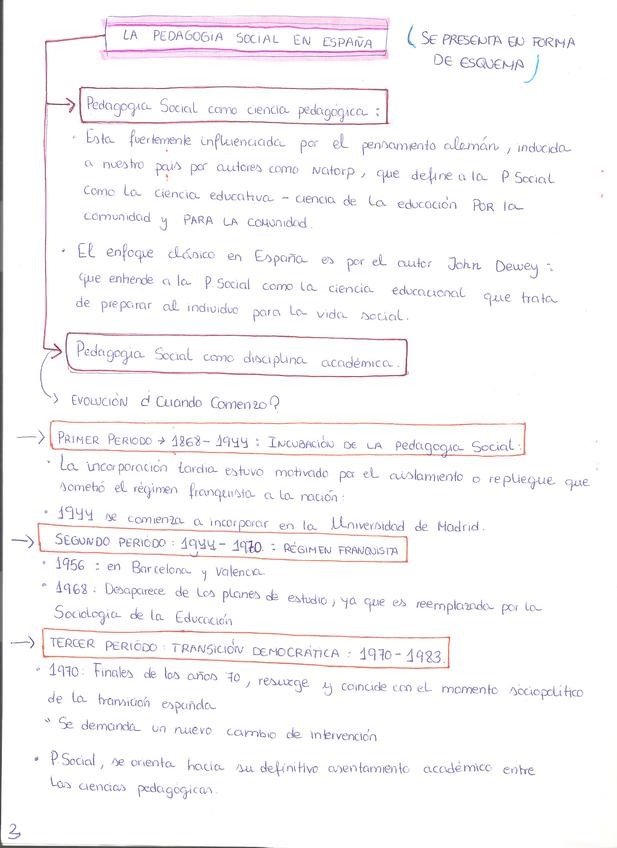 LA PEDAGOGIA SOCIAL EN ESPAÑA
(SE PRESENTA EN FORMA
DE ESQUEMA)
Pedagogia Social como ciencia pedagógica :
· Esta fuertemente influenciada por el pensamiento alemán, inducida
a nuestro pais por autores como Natorp, que define a la P. Social
como la ciencia educativa - ciencia de la educación POR la
comunidad y PARA LA COMUNIDAD.
· El enfoque clásico en España es por el autor John Dewey :
que entiende a la P. Social como la ciencia educacional que trata
de preparar al individuo para la vida social.
Pedagogia Social como disciplina académica.
EVOLUCIÓN ¿Cuando Comenzo?
PRIMER PERIODO → 1868-1944 : INCUBACIÓN DE LA Pedagogia Social.
· La incorporación tardia estuvo motivado por el aislamiento o repliegue que
sometió el régimen franquista a la nación.
· 1944 se comienza a incorporar en la Universidad de Madrid.
SEGUNDO PERIÓDO : 1944-1970. : RÉGIMEN FRANQUISTA
· 1956 : en Barcelona y Valencia
· 1968 : Desaparece de los planes de estudio, ya que es reemplazada por la
Sociologia de la Educación
TERCER PERIÓDO : TRANSICIÓN DEMOCRÁTICA : 1970-1983.
· 1970: Finales de los años 70, resurge y coincide con el momento sociopolitico
de la transición española
" Se demanda un nuevo cambio de intervención
· P. Social, se orienta hacia su definitivo asentamiento académico entre
Las ciencias pedagógicas.
3